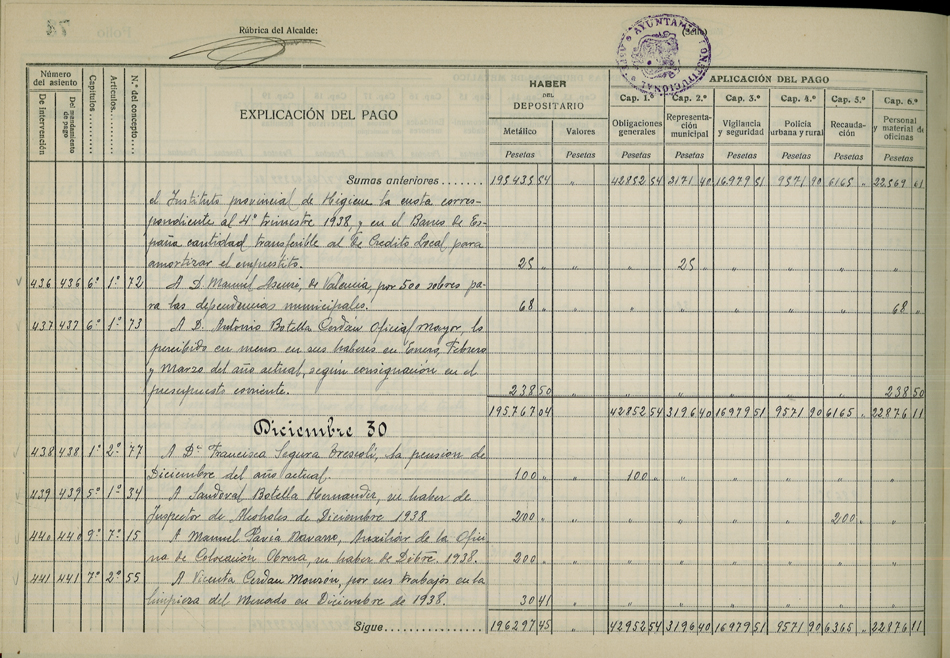 Rúbrica del Alcalde:
AYUNTAMI CONSTITUCIONAL
Número del asiento
De Intervención
Del mandamiento de pago
Capítulos
Artículos
N.º del concepto
EXPLICACIÓN DEL PAGO
HABER DEL DEPOSITARIO
Metálico
Valores
Pesetas Pesetas
APLICACIÓN DEL PAGO
Cap. 1.º Cap. 2.º Cap. 3.º Cap. 4.º Cap. 5.º Cap. 6.º
Obligaciones generales
Representación municipal
Vigilancia y seguridad
Policía urbana y rural
Recaudación
Personal y material de oficinas
Pesetas Pesetas Pesetas Pesetas Pesetas Pesetas
Sumas anteriores....... 195435 54 " 42852 54 3171 40 16979 51 9571 90 6165 " 22569 61
el Instituto provincial de Higiene la cuota corres-
pondiente al 4º trimestre 1938, y en el Banco de Es-
paña cantidad transferible al de Credito Local para
amortizar el empréstito. 25 " " " 25 " " " " "
436 436 6º 1º 72 A D. Manuel Asensi, de Valencia, por 500 sobres pa-
ra las dependencias municipales. 68 " " " " " " " 68 "
437 437 6º 1º 73 A D. Antonio Botella Cerdán Oficial Mayor, lo
percibido en menos en sus haberes en Enero, Febrero
y Marzo del año actual, según consignación en el
presupuesto corriente. 238 50 238 50
195767 04 42852 54 3196 40 16979 51 9571 90 6165 " 22876 11
Diciembre 30
438 438 1º 2º 77 A Dª Francisca Segura la pension de
Diciembre del año actual. 100 " " 100 " " " " " "
439 439 5º 1º 34 A Sandoval Botella Hernandez, su haber de
Inspector de Alcoholes de Diciembre 1938 200 " " " " " " 200 " "
440 440 9º 7º 15 A Manuel Pavía Navarro, Auxiliar de la Ofici-
na de Colocación Obrera, su haber de Dicbre. 1938. 200 " " " " " " " "
441 441 7º 2º 55 A Vicenta Cerdan Monzón, por sus trabajos en la
limpieza del Mercado en Diciembre de 1938. 30 41 " " " " " " "
Sigue................ 196297 45 " 42952 54 3196 40 16979 51 9571 90 6365 " 22876 11